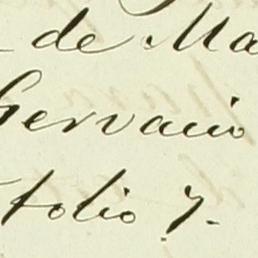 de Ma
Gervacio
folio 7.